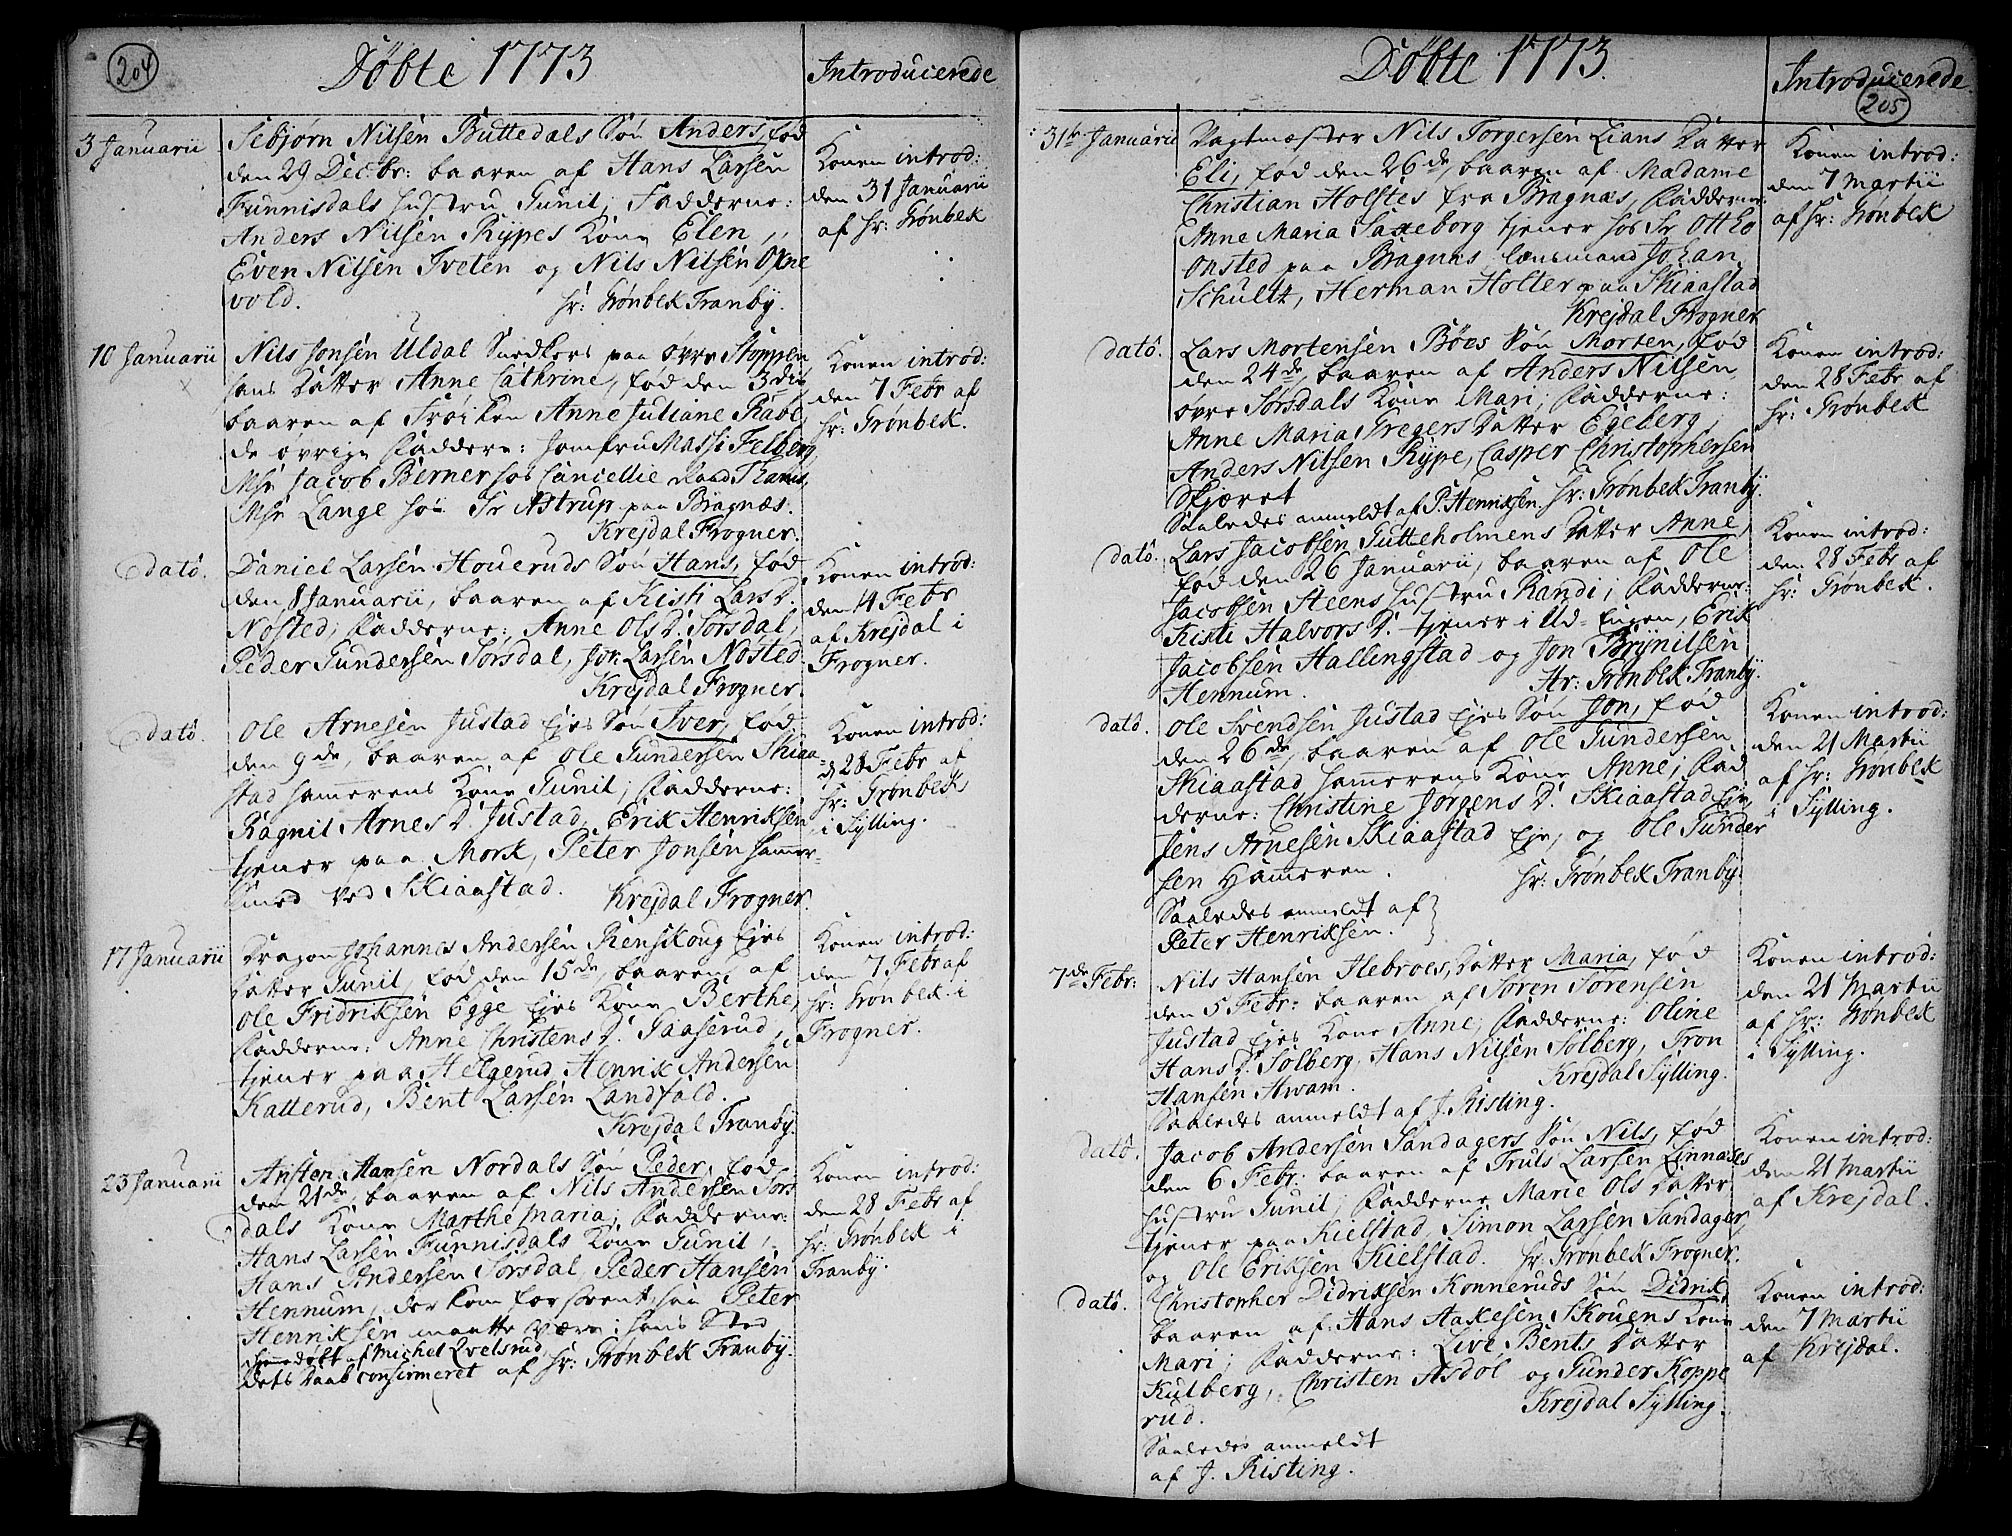 204
Döbte 1773
Introducerede
3 Januarii
Sebjørn Nilsen Buttedals Søn Anders, fød
den 29 Decbr: baaren af Hans Larsen
Funnisdals Hustru Gunil; Fadderne:
Anders Nilsen Rypes Kone Elen,
Even Nilsen Tveten og Nils Nilsen Oxne
vold.
Hr: Grønbek Tranby.
Konen introd:
den 31 Januarii
af Hr: Grønbek
10 Januarii
Nils Jonsen Uldal Snedkers paa øvre Stoppen
hans Datter Anne Cathrine, fød den 3die
baaren af Frøiken Anne Juliane Rabe,
de øvrige Faddere: Jomfru Massi Felberg
Msr Jacob Berner hos Cancellie Raad
Msr Lange hos Sr Astrup paa Bragnæs.
Krejdal Frogner.
Konen introd:
den 7 Febr af
Hr: Grønbek.
dato.
Daniel Larsen Houeruds Søn Hans, fød
den 8 Januarii, baaren af Kisti Lars D.
Nøsted; Fadderne: Anne Ols D. Sørsdal,
Peder Gundersen Sørsdal, Joh: Larsen Nøsted.
Krejdal Frogner.
Konen introd:
den 14 Febr
af Krejdal i
Frogner.
dato.
Ole Arnesen Justad Ejes Søn Iver, fød
den 9de, baaren af Ole Gundersen Skiaa
stad Hamerens Kone Gunil; Fadderne:
Ragnil Arnes D. Justad, Erik Henriksen
tjener paa Mork, Peter Jonsen Hamer-
smed ved Skiaastad.
Krejdal Frogner.
Konen introd:
d 28 Febr af
Hr: Grønbek
i Sylling.
17 Januarii
Dragon Johannes Andersen Renskoug Ejes
Datter Gunil, fød den 15de, baaren af
Ole Fridriksen Egge Ejes Kone Berthe,
Fadderne: Anne Christens D. Gaaserud,
tjener paa Helgerud, Henrik Andersen
Katterud, Bent Larsen Landfald.
Krejdal Tranby.
Konen introd:
den 7 Febr af
Hr: Grønbek i
Frogner.
23 Januarii
Ansten Hansen Nordals Søn Peder, fød
den 21de, baaren af Nils Andersen Sørs
dals Kone Marthe Maria; Fadderne:
Hans Larsen Funnisdals Kone Gunil,
Hans Andersen Sørsdal, Peder Hansen
Hennum, der kom for sent, saa Peter
Henriksen maatte være i hans Sted
hjemedøbt af Michel Qvelsrud
Dets Daab confirmeret af Hr: Grønbek Tranby.
Konen introd:
den 28 Febr af
Hr: Grønbek i
Tranby.
Döbte 1773.
Introducerede
205
31te Januarii
Vagtmester Nils Torgersen Lians Datter
Eli, fød den 26de, baaren af Madame
Christian Holstes fra Bragnæs, Fadderne:
Anne Maria Saxeborg tjener hos Sr Otto
Onsted paa Bragnæs Lensmand Johan
Schultz, Herman Holter paa Skiaastad
Krejdal Frogner
Konen introd:
den 7 Martii
af Hr: Grønbek
dato.
Lars Mortensen Böes Søn Morten, fød
den 24de, baaren af Anders Nilsen
øvre Sørsdals Kone Mari; Fadderne:
Anne Maria Gregers Datter Egeberg,
Anders Nilsen Rype, Casper Christophersen
Skjæret
Hr: Grønbek Tranby.
Saaledes anmeldt af P. Henriksen
Konen introd:
den 28 Febr af
Hr: Grønbek
dato.
Lars Jacobsen Gutteholmens Datter Anne,
fød den 26 Januarii, baaren af Ole
Jacobsen Steens Hustru Randi; Fadderne:
Kisti Halvors D. tjener i Ud-Engen, Erik
Jacobsen Hallingstad og Jon Brynilsen
Hennum.
Hr: Grønbek Tranby.
Konen introd:
den 28 Febr af
Hr: Grønbek.
dato.
Ole Svendsen Justad Ejes Søn Jon, fød
den 26de, baaren af Ole Gundersen
Skiaastad Hamerens Kone Anne; Fad
derne: Christine Jørgens D. Skiaastad Eje,
Jens Arnesen Skiaastad Eje, og Ole Gunder
sen Hameren.
Hr: Grønbek Tranby.
Saaledes anmeldt af
Peter Henriksen.
Konen introd:
den 21 Martii
af Hr: Grønbek
i Sylling.
7de Febr:
Nils Hansen Hebroes, Datter Maria, fød
den 5 Febr: baaren af Søren Sørensen
Justad Ejes Kone Anne; Fadderne: Oline
Hans D. Solberg, Hans Nilsen Solberg, Tron
Hansen Hwam.
Krejdal Sylling.
Saaledes anmeldt af J. Risting.
Konen introd:
den 21 Martii
af Hr: Grønbek
i Sylling.
dato.
Jacob Andersen Sandagers Søn Nils, fød
den 6 Febr: baaren af Truls Larsen Linnæses
Hustru Gunil; Fadderne Marie Ols Datter
tjener paa Kielstad, Simon Larsen Sandager,
og Ole Eriksen Kielstad. Hr: Grønbek Frogner.
Konen introd:
den 21 Martii
af Krejdal.
dato.
Christopher Didriksen Konneruds Søn Didrik,
baaren af Hans Aakesen Skouens Kone
Mari; Fadderne: Live Bents Datter
Kulberg, Christen Asdøl og Gunder Koppe
rud.
Krejdal Sylling.
Saaledes anmeldt
af J. Risting.
Konen introd:
den 7 Martii
af Krejdal.